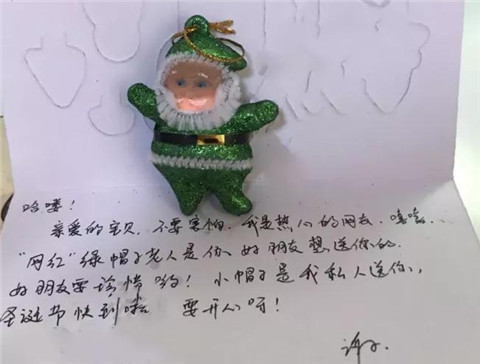 哈喽！
亲爱的宝贝，不要害怕，我是热心的网友，嘻嘻...
"网红"绿帽子老人是你好朋友想送你的，
好朋友要珍惜哟！小帽子是我私人送你，
圣诞节快到啦 要开心呀！